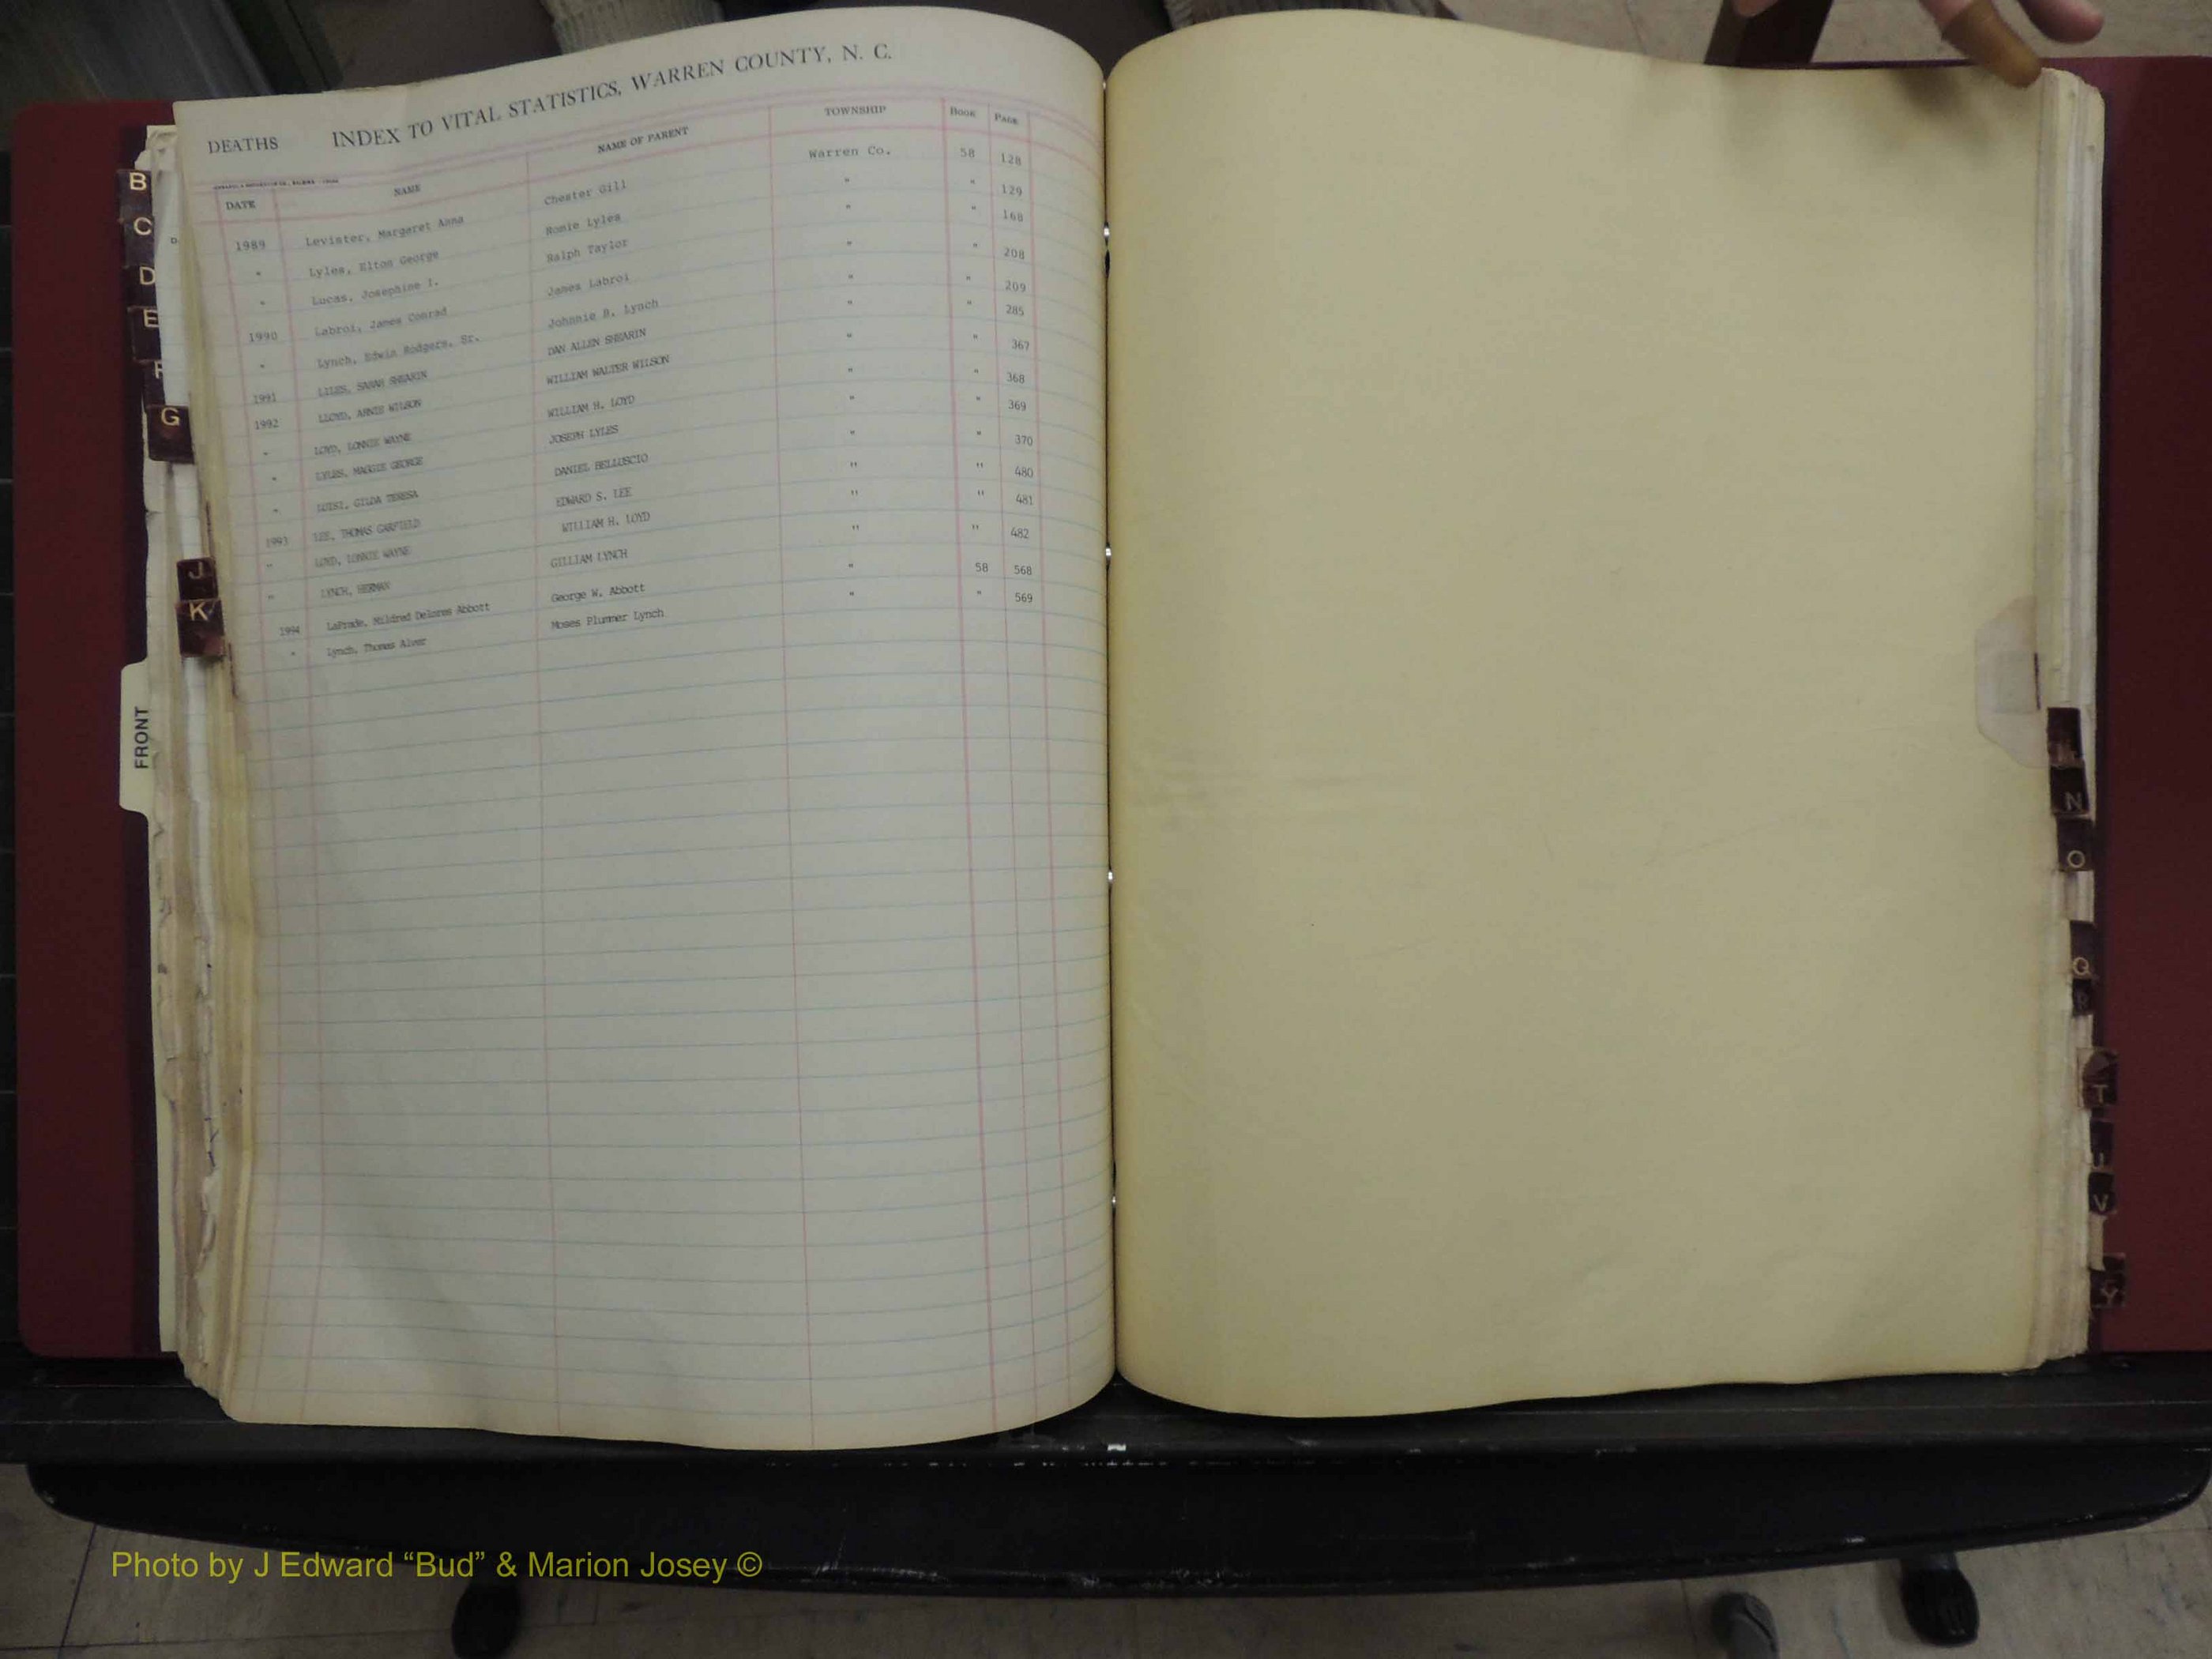 INDEX TO VITAL STATISTICS, WARREN COUNTY, N. C.
DEATHS
DATE NAME NAME OF PARENT TOWNSHIP BOOK PAGE
1989 Levister, Margaret Anna Chester Gill Warren Co. 58 128
" Lyles, Elton George Romie Lyles " " 129
" Lucas, Josephine I. Ralph Taylor " " 168
1990 Labroi, James Conrad James Labroi " " 208
" Lynch, Edwin Rodgers, Sr. Johnnie B. Lynch " " 209
1991 LILES, SARAH SHEARIN DAN ALLEN SHEARIN " " 285
1992 LLOYD, ANNIE WILSON WILLIAM WALTER WILSON " " 367
" LOYD, LONNIE WAYNE WILLIAM H. LOYD " " 368
" LYLES, MAGGIE GEORGE JOSEPH LYLES " " 369
" LUISI, GILDA TERESA DANIEL BELLUSCIO " " 370
1993 LEE, THOMAS GARFIELD EDWARD S. LEE " " 480
" LOYD, LONNIE WAYNE WILLIAM H. LOYD " " 481
" LYNCH, HERMAN GILLIAM LYNCH " " 482
1994 LaPrade, Mildred Delores Abbott George W. Abbott " 58 568
" Lynch, Thomas Alver Moses Plummer Lynch " " 569
B
C
D
E
F
G
J
K
FRONT
N
O
Q
R
T
U
V
Y
Photo by J Edward “Bud” & Marion Josey ©